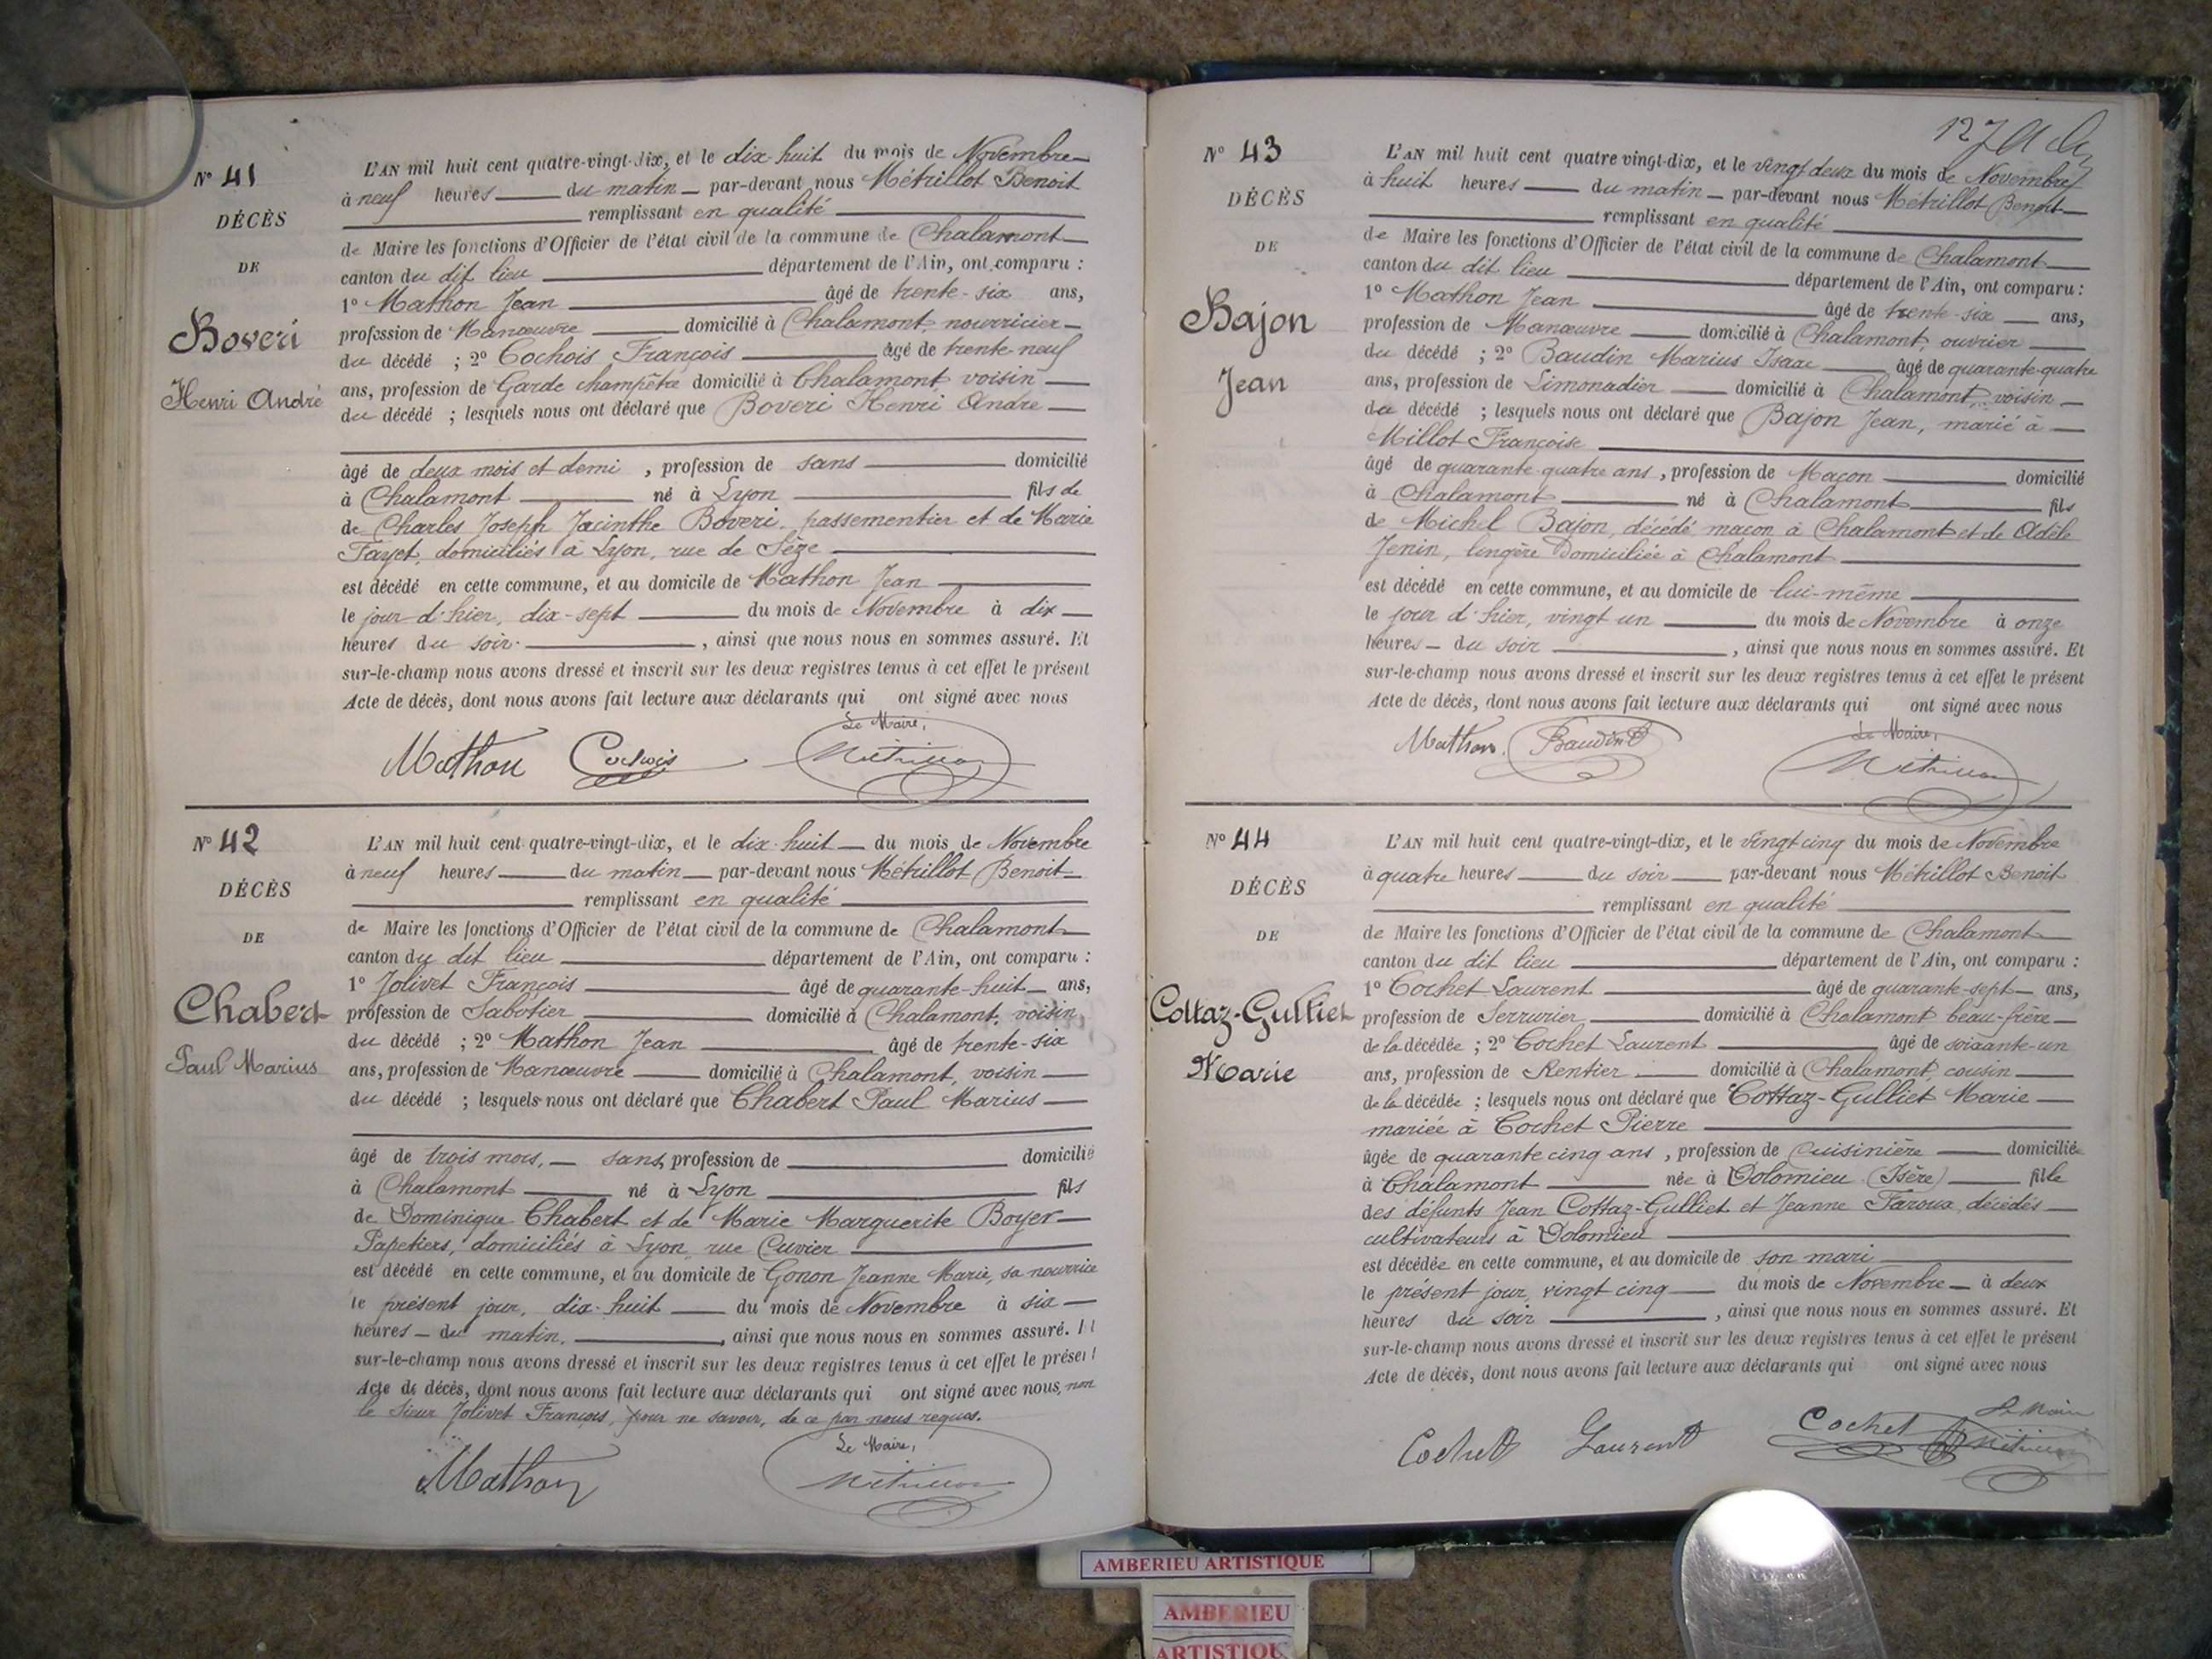 N° 41
DÉCÈS
DE
Boveri
Henri André
L'AN mil huit cent quatre-vingt-dix, et le dix-huit du mois de Novembre
à neuf heures du matin par-devant nous Métrillot Benoit
remplissant en qualité
de Maire les fonctions d'Officier de l'état civil de la commune de Chalamont
canton du dit lieu département de l'Ain, ont comparu :
1° Mathon Jean âgé de trente-six ans,
profession de Manœuvre domicilié à Chalamont, nourricier
du décédé ; 2° Cochois François âgé de trente-neuf
ans, profession de Garde champêtre domicilié à Chalamont voisin
du décédé ; lesquels nous ont déclaré que Boveri Henri André
âgé de deux mois et demi , profession de sans domicilié
à Chalamont né à Lyon fils de
de Charles Joseph Jacinthe Boveri, passementier et de Marie
Fayet, domiciliés à Lyon, rue de Sèze
est décédé en cette commune, et au domicile de Mathon Jean
le jour d'hier, dix-sept du mois de Novembre à dix
heures du soir , ainsi que nous nous en sommes assuré. Et
sur-le-champ nous avons dressé et inscrit sur les deux registres tenus à cet effet le présent
Acte de décès, dont nous avons fait lecture aux déclarants qui ont signé avec nous
Le Maire,
Mathon Cochois Métrillot
N° 42
DÉCÈS
DE
Chabert
Paul Marius
L'AN mil huit cent quatre-vingt-dix, et le dix-huit du mois de Novembre
à neuf heures du matin par-devant nous Métrillot Benoit
remplissant en qualité
de Maire les fonctions d'Officier de l'état civil de la commune de Chalamont
canton du dit lieu département de l'Ain, ont comparu :
1° Jolivet François âgé de quarante-huit ans,
profession de Sabotier domicilié à Chalamont, voisin
du décédé ; 2° Mathon Jean âgé de trente-six
ans, profession de Manœuvre domicilié à Chalamont, voisin
du décédé ; lesquels nous ont déclaré que Chabert Paul Marius
âgé de trois mois, sans profession de domicilié
à Chalamont né à Lyon fils
de Dominique Chabert et de Marie Marguerite Boyer
Papetiers, domiciliés à Lyon, rue Cuvier
est décédé en cette commune, et au domicile de Gonon Jeanne Marie, sa nourrice
le présent jour, dix-huit du mois de Novembre à six
heures du matin, , ainsi que nous nous en sommes assuré. Et
sur-le-champ nous avons dressé et inscrit sur les deux registres tenus à cet effet le présent
Acte de décès, dont nous avons fait lecture aux déclarants qui ont signé avec nous, non
le Sieur Jolivet François, pour ne savoir, de ce par nous requis.
Le Maire,
Mathon Métrillot
127
N° 43
DÉCÈS
DE
Bajon
Jean
L'AN mil huit cent quatre vingt-dix, et le vingt deux du mois de Novembre
à huit heures du matin par-devant nous Métrillot Benoit
remplissant en qualité
de Maire les fonctions d'Officier de l'état civil de la commune de Chalamont
canton du dit lieu département de l'Ain, ont comparu :
1° Mathon Jean âgé de trente-six ans,
profession de Manœuvre domicilié à Chalamont, ouvrier
du décédé ; 2° Baudin Marius Isaac âgé de quarante-quatre
ans, profession de Limonadier domicilié à Chalamont, voisin
du décédé ; lesquels nous ont déclaré que Bajon Jean, marié à
Millot Françoise
âgé de quarante-quatre ans, profession de Maçon domicilié
à Chalamont né à Chalamont fils
de Michel Bajon, décédé maçon à Chalamont et de Adèle
Jenin, lingère domiciliée à Chalamont
est décédé en cette commune, et au domicile de lui-même
le jour d'hier, vingt un du mois de Novembre à onze
heures du soir , ainsi que nous nous en sommes assuré. Et
sur-le-champ nous avons dressé et inscrit sur les deux registres tenus à cet effet le présent
Acte de décès, dont nous avons fait lecture aux déclarants qui ont signé avec nous
Le Maire,
Mathon Baudin Métrillot
N° 44
DÉCÈS
DE
Cottaz-Gulliet
Marie
L'AN mil huit cent quatre-vingt-dix, et le vingt cinq du mois de Novembre
à quatre heures du soir par-devant nous Métrillot Benoit
remplissant en qualité
de Maire les fonctions d'Officier de l'état civil de la commune de Chalamont
canton du dit lieu département de l'Ain, ont comparu :
1° Cochet Laurent âgé de quarante-sept ans,
profession de Serrurier domicilié à Chalamont beau-frère
de la décédée ; 2° Cochet Laurent âgé de soixante-un
ans, profession de Rentier domicilié à Chalamont, cousin
de la décédée ; lesquels nous ont déclaré que Cottaz-Gulliet Marie
mariée à Cochet Pierre
âgée de quarante cinq ans , profession de Cuisinière domiciliée
à Chalamont née à Dolomieu (Isère) fille
des défunts Jean Cottaz-Gulliet et Jeanne Faroux, décédés
cultivateurs à Dolomieu
est décédée en cette commune, et au domicile de son mari
le présent jour, vingt cinq du mois de Novembre à deux
heures du soir , ainsi que nous nous en sommes assuré. Et
sur-le-champ nous avons dressé et inscrit sur les deux registres tenus à cet effet le présent
Acte de décès, dont nous avons fait lecture aux déclarants qui ont signé avec nous
Le Maire
Cochet Laurent Cochet Métrillot
AMBERIEU ARTISTIQUE
AMBERIEU
ARTISTIQUE